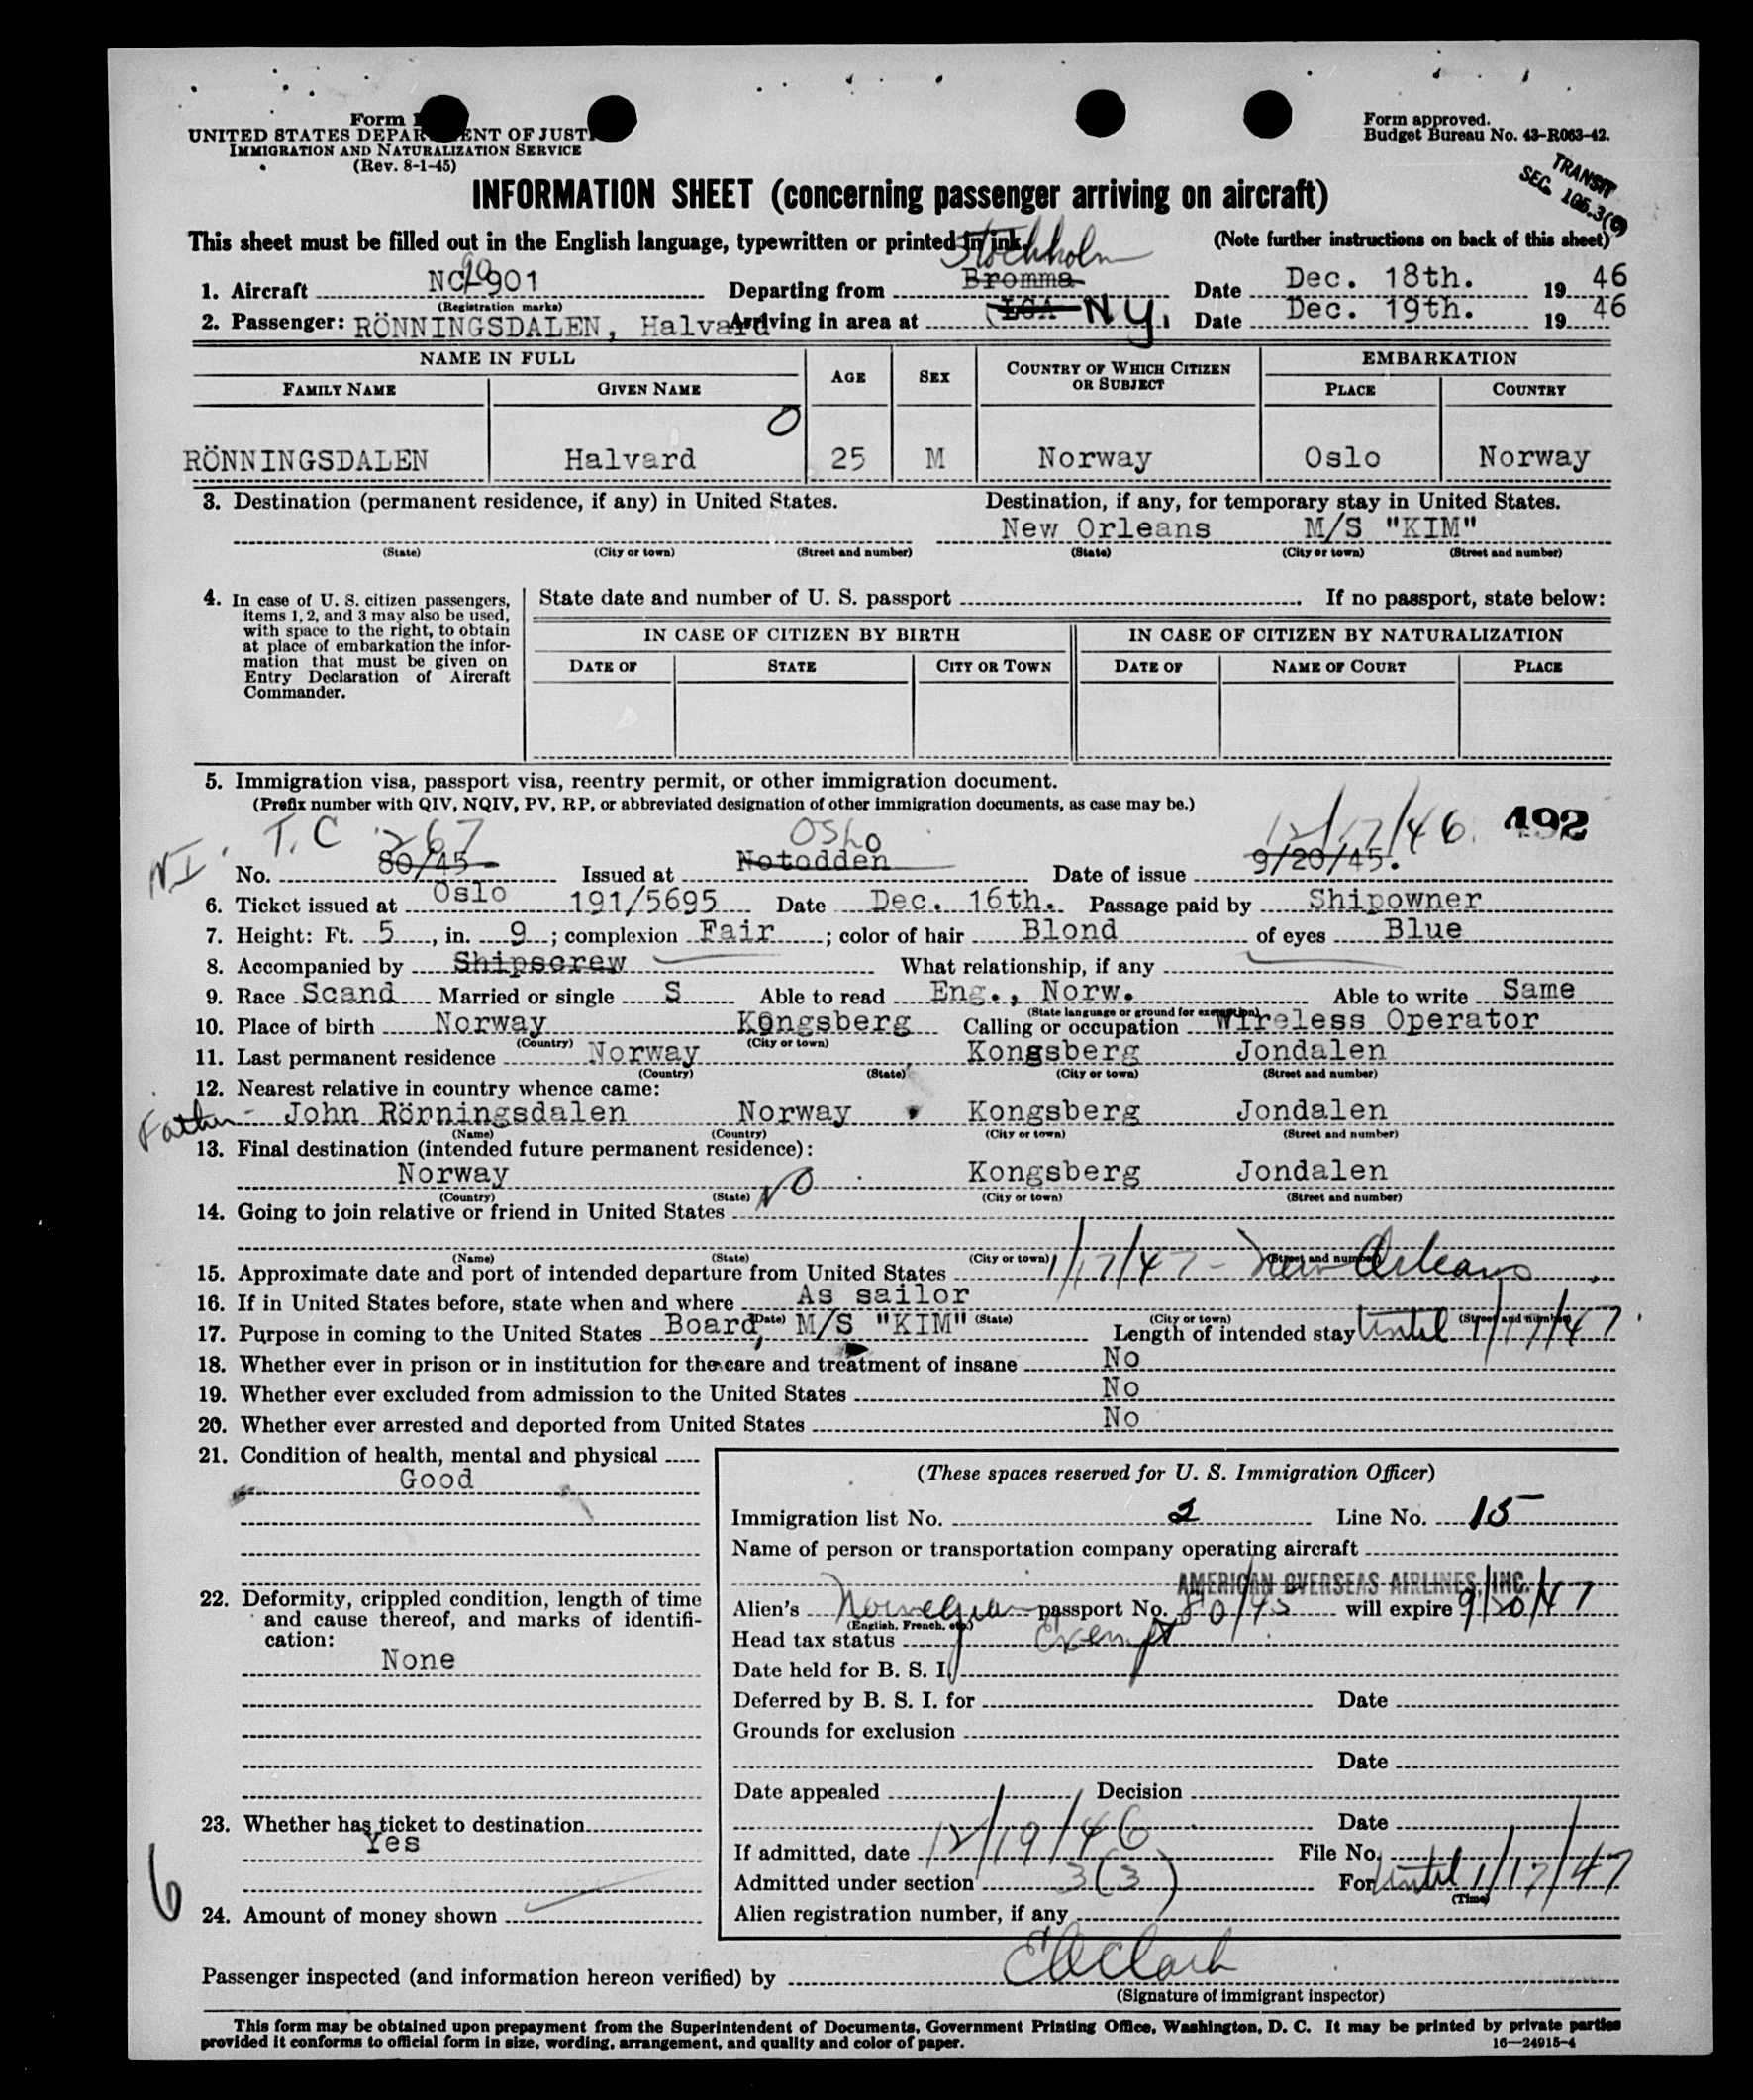 Form
UNITED STATES DEPARTMENT OF JUST
IMMIGRATION AND NATURALIZATION SERVICE
(Rev. 8-1-45)
Form approved.
Budget Bureau No. 43-R063-42.
TRANSIT
SEC. 105.3(
INFORMATION SHEET (concerning passenger arriving on aircraft)
This sheet must be filled out in the English language, typewritten or printed in ink.
(Note further instructions on back of this sheet)
Stockholm
1. Aircraft NC 90901 Departing from Bromma Date Dec. 18th. 1946
(Registration marks)
2. Passenger: RÖNNINGSDALEN, Halvard Arriving in area at LGA N.Y. Date Dec. 19th. 1946
NAME IN FULL AGE SEX COUNTRY OF WHICH CITIZEN OR SUBJECT EMBARKATION
FAMILY NAME GIVEN NAME PLACE COUNTRY
O
RÖNNINGSDALEN Halvard 25 M Norway Oslo Norway
3. Destination (permanent residence, if any) in United States. Destination, if any, for temporary stay in United States.
New Orleans M/S "KIM"
(State) (City or town) (Street and number) (State) (City or town) (Street and number)
4. In case of U. S. citizen passengers, items 1, 2, and 3 may also be used, with space to the right, to obtain at place of embarkation the information that must be given on Entry Declaration of Aircraft Commander.
State date and number of U. S. passport . If no passport, state below:
IN CASE OF CITIZEN BY BIRTH IN CASE OF CITIZEN BY NATURALIZATION
DATE OF STATE CITY OR TOWN DATE OF NAME OF COURT PLACE
5. Immigration visa, passport visa, reentry permit, or other immigration document.
(Prefix number with QIV, NQIV, PV, RP, or abbreviated designation of other immigration documents, as case may be.)
NI. T.C 267 OSLO 12/17/46 492
No. 80/45 Issued at Notodden Date of issue 9/20/45.
6. Ticket issued at Oslo 191/5695 Date Dec. 16th. Passage paid by Shipowner
7. Height: Ft. 5, in. 9; complexion Fair; color of hair Blond of eyes Blue
8. Accompanied by Shipscrew What relationship, if any
9. Race Scand Married or single S Able to read Eng., Norw. Able to write Same
(State language or ground for exemption)
10. Place of birth Norway Kongsberg Calling or occupation Wireless Operator
(Country) (City or town)
11. Last permanent residence Norway Kongsberg Jondalen
(Country) (State) (City or town) (Street and number)
12. Nearest relative in country whence came:
Father - John Rörningsdalen Norway Kongsberg Jondalen
(Name) (Country) (City or town) (Street and number)
13. Final destination (intended future permanent residence):
Norway Kongsberg Jondalen
(Country) (State) (City or town) (Street and number)
14. Going to join relative or friend in United States NO
(Name) (State) (City or town) (Street and number)
15. Approximate date and port of intended departure from United States 1/17/47 - New Orleans
16. If in United States before, state when and where As sailor
(Date) (State) (City or town) (Street and number)
17. Purpose in coming to the United States Board, M/S "KIM" Length of intended stay Until 1/17/47
18. Whether ever in prison or in institution for the care and treatment of insane No
19. Whether ever excluded from admission to the United States No
20. Whether ever arrested and deported from United States No
21. Condition of health, mental and physical
Good
22. Deformity, crippled condition, length of time and cause thereof, and marks of identification:
None
23. Whether has ticket to destination
Yes
6
24. Amount of money shown
(These spaces reserved for U. S. Immigration Officer)
Immigration list No. 2 Line No. 15
Name of person or transportation company operating aircraft
AMERICAN OVERSEAS AIRLINES, INC.
Alien's Norwegian passport No. 80/45 will expire 9/20/47
(English, French, etc.)
Head tax status Exempt
Date held for B. S. I.
Deferred by B. S. I. for Date
Grounds for exclusion
Date
Date appealed Decision
Date
If admitted, date 12/19/46 File No.
Admitted under section 3(3) For Until 1/17/47
(Time)
Alien registration number, if any
Passenger inspected (and information hereon verified) by
(Signature of immigrant inspector)
This form may be obtained upon prepayment from the Superintendent of Documents, Government Printing Office, Washington, D. C. It may be printed by private parties
provided it conforms to official form in size, wording, arrangement, and quality and color of paper.
16—24915-4